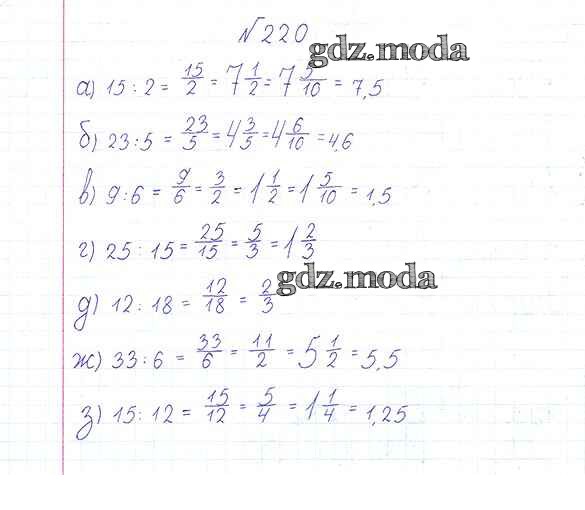 №220
gdz.moda
а) 15 : 2 = 15/2 = 7 1/2 = 7 5/10 = 7,5
б) 23 : 5 = 23/5 = 4 3/5 = 4 6/10 = 4,6
в) 9 : 6 = 9/6 = 3/2 = 1 1/2 = 1 5/10 = 1,5
г) 25 : 15 = 25/15 = 5/3 = 1 2/3
gdz.moda
д) 12 : 18 = 12/18 = 2/3
ж) 33 : 6 = 33/6 = 11/2 = 5 1/2 = 5,5
з) 15 : 12 = 15/12 = 5/4 = 1 1/4 = 1,25